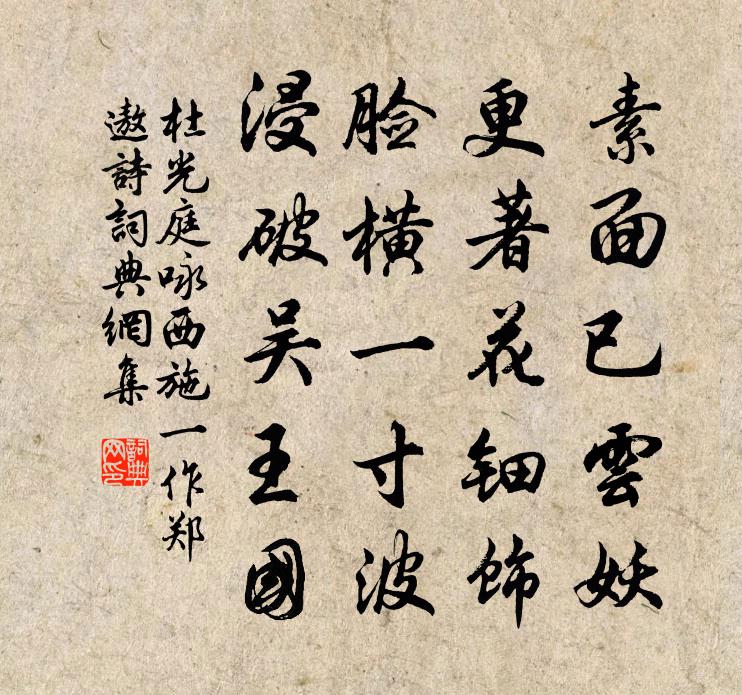 素面已雲妖
更著花钿饰
脸橫一寸波
浸破吴王國
杜光庭咏西施一作郑
遨詩詞典網集
詞典網印